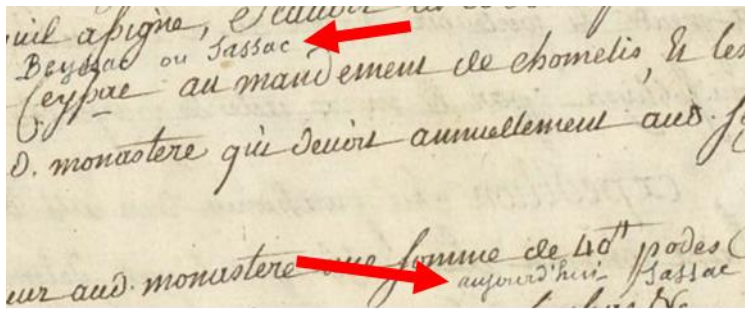 uil assigne, Scavoir
Beyssac ou Sassac
Ceyssac au mandement de chomelis, Et les
d. monastere qui devoit annuellement aud.
eur aud. monastere une somme de 40tt podes
aujourd'hui Sassac